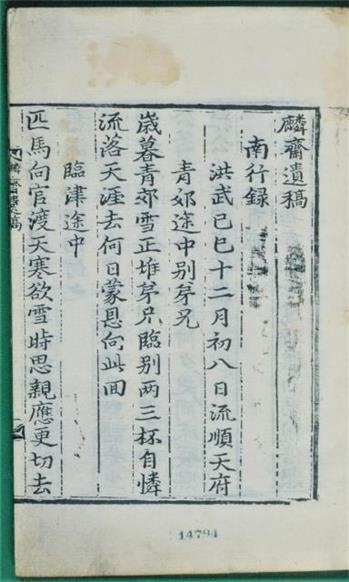 麟齋遺稿
南行録
洪武己巳十二月初八日流順天府
青郊途中别弟兄
歳暮青郊雪正堆弟兄臨别两三杯自憐
流落天涯去何日蒙恩向此回
臨津途中
匹馬向官渡天寒欲雪時思親應更切去
14794